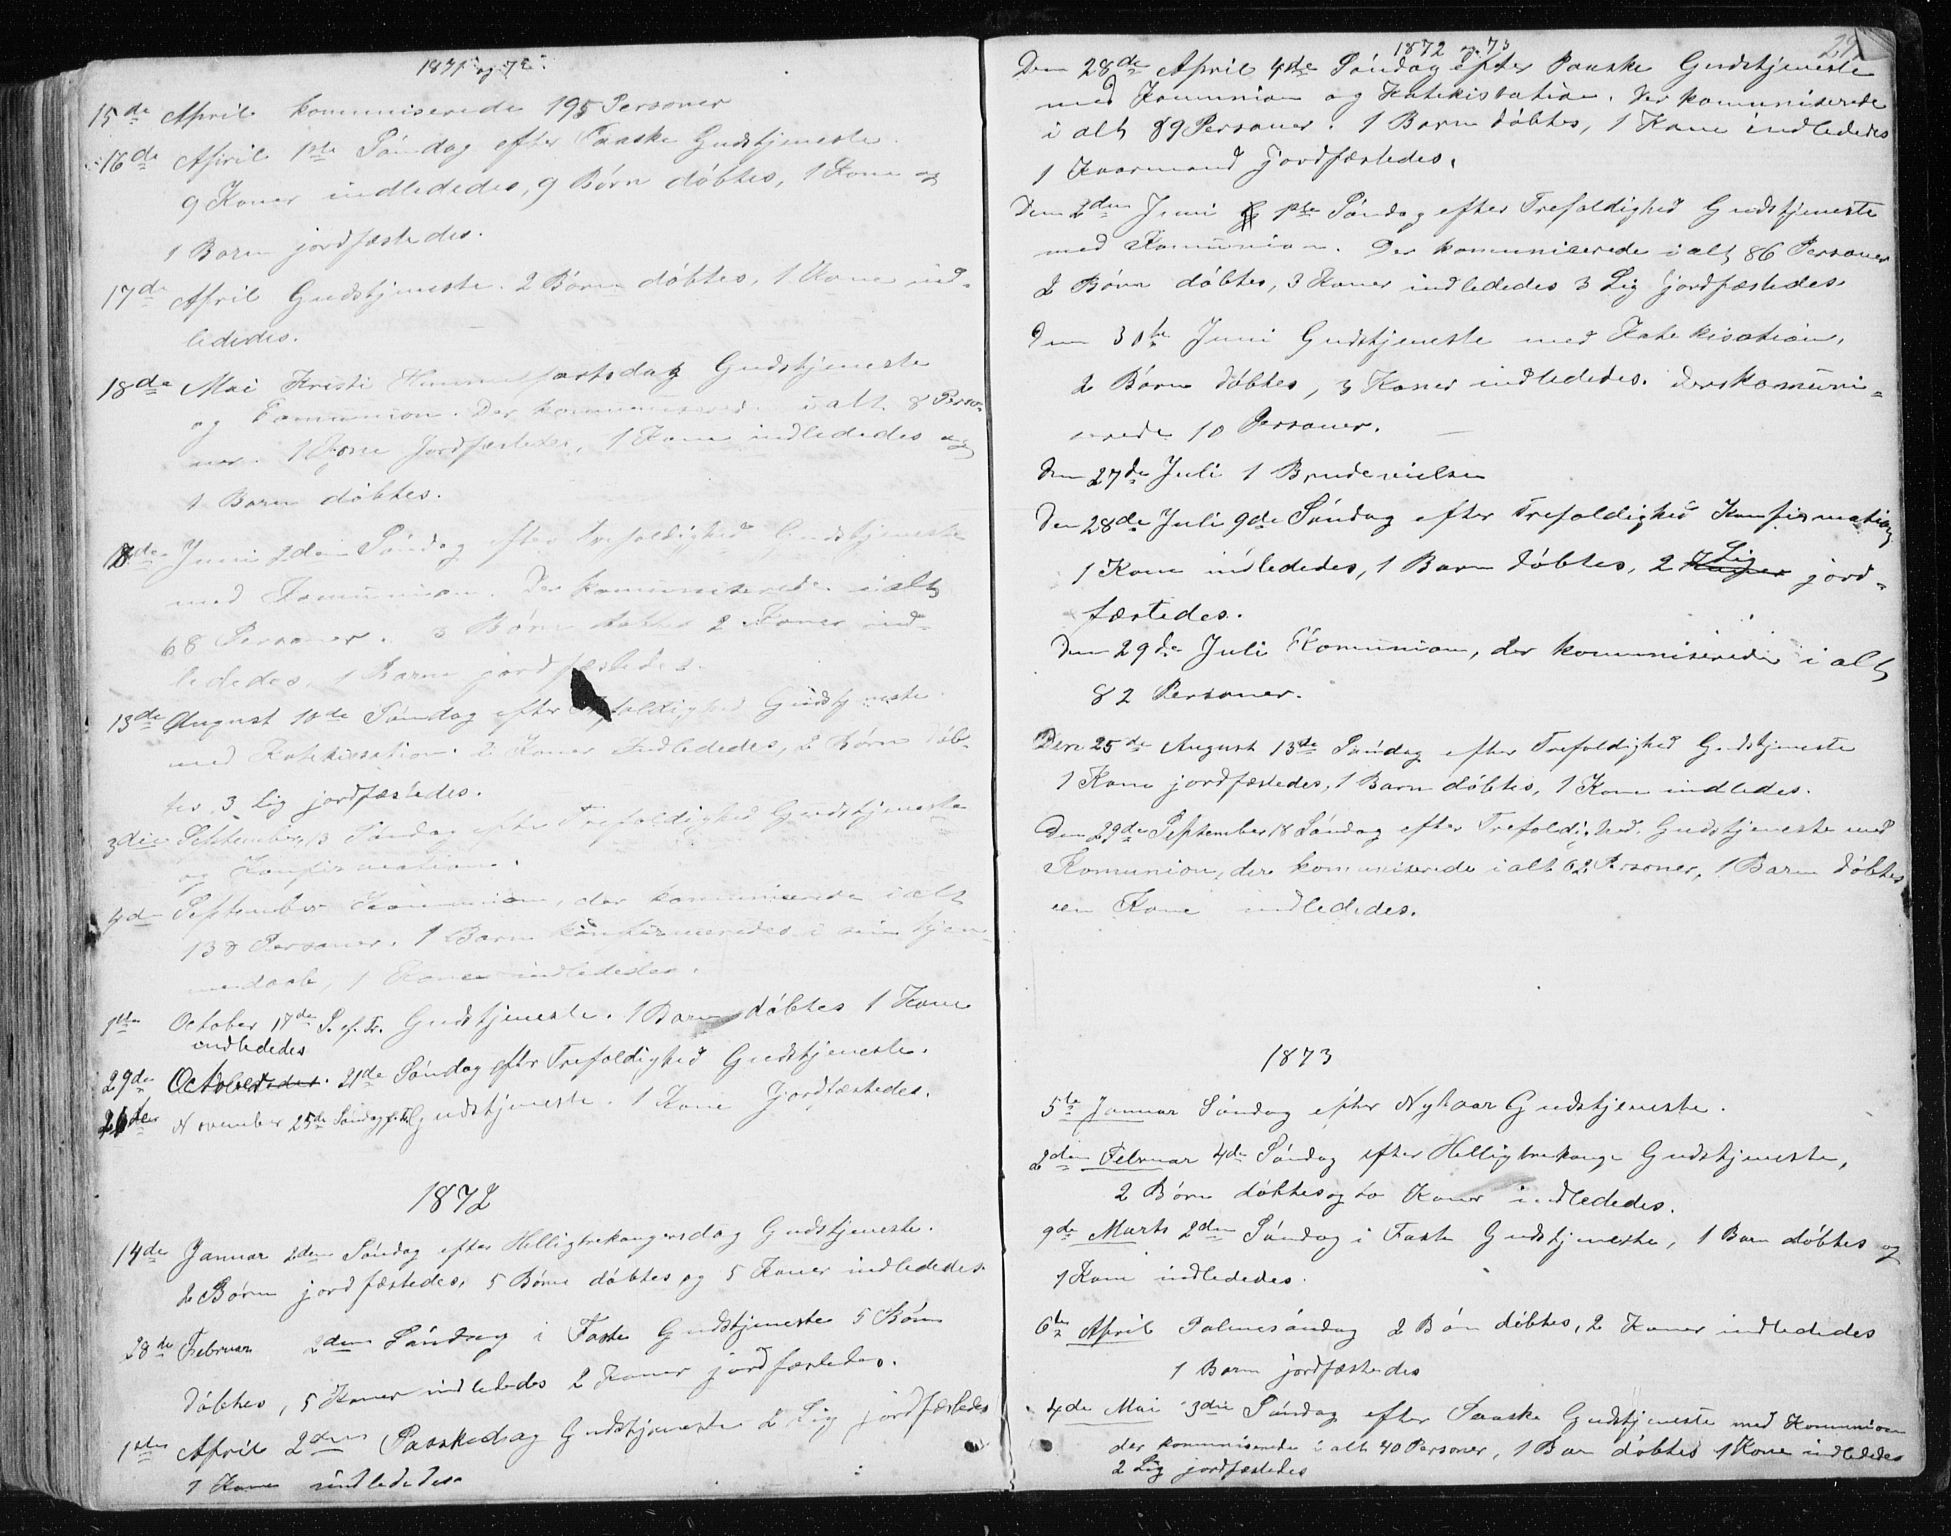 1871 og 72
15de April kommuniserede 195 Personer
16de April 1ste Søndag efter Paaske Gudstjeneste.
9 Koner indlededes, 9 Børn døbtes, 1 Kone og
1 Barn jordfæstedes.
17de April Gudstjeneste. 2 Børn døbtes, 1 Kone ind-
lededes.
18de Mai Kristi Himmelfartsdag Gudstjeneste
og Komunion. Der kommuniserede i alt 8 Perso-
ner. 1 Kone Jordfæstedes, 1 Kone indlededes og
1 Barn døbtes.
18de Juni 2den Søndag efter Trefoldighed Gudstjeneste
med Komunion. Der komuniserede i alt
68 Personer. 3 Børn døbtes 2 Koner ind-
lededes, 1 Barn jordfæstedes.
13de August 10de Søndag efter Trefoldighed Gudstjeneste
med Katekisation. 2 Koner Indlededes, 2 Børn døb-
tes, 3 Lig jordfæstedes.
3die September 13 Søndag efter Trefoldighed Gudstjeneste
og Konfirmation.
4de September Komunion, der komuniserede i alt
138 Personer. 1 Barn konfirmeredes i sin hjem-
medaab, 1 Kone indlededes.
1ste October 17de S. ef. Tr. Gudstjeneste. 1 Barn døbtes 1 Kone
indlededes
29de October 21de Søndag efter Trefoldighed Gudstjeneste.
26de November 25de Søndag ef. Tr. Gudstjeneste. 1 Kone Jordfæstedes.
1872
14de Januar 2den Søndag efter Helligtrekongersdag Gudstjeneste.
2 Børn jordfæstedes, 5 Børn døbtes og 5 Koner indlededes.
28de Februar 2den Søndag i Faste Gudstjeneste 5 Børn
døbtes, 5 Koner indlededes 2 Koner jordfæstedes.
1ste April 2den Paaskedag Gudstjeneste 2 Lig jordfæstedes
1 Kone indlededes.
1872 og 73
Den 28de April 4de Søndag efter Paaske Gudstjeneste
med Komunion og Katekisation. Der komuniserede
i alt 89 Personer. 1 Barn døbtes, 1 Kone indlededes
1 Kaarmand jordfæstedes.
Den 2den Juni 1ste Søndag efter Trefoldighed Gudstjeneste
med Komunion. Der komuniserede i alt 86 Personer
2 Børn døbtes, 3 Koner indlededes 3 Lig jordfæstedes.
Den 30te Juni Gudstjeneste med Katekisation.
2 Børn døbtes, 3 Koner indlededes. Der komuni-
serede 10 Personer.
Den 27de Juli 1 Brudevielse
Den 28de Juli 9de Søndag efter Trefoldighed Konfirmation
1 Kone indlededes, 1 Barn døbtes, 2 Koner Lig jord-
fæstedes.
Den 29de Juli Komunion, der kommuniserede i alt
82 Personer.
Den 25de August 13de Søndag efter Trefoldighed Gudstjeneste
1 Kone jordfæstedes, 1 Barn døbtes, 1 Kone indledes.
Den 29de September 18 Søndag efter Trefoldighed. Gudstjeneste med
Komunion, der komuniserede i alt 62 Personer, 1 Barn døbtes
een Kone indlededes.
1873
5te Januar Søndag efter Nytaar Gudstjeneste.
2den Februar 4de Søndag efter Helligtrekonge Gudstjeneste,
2 Børn døbtes og to Koner indlededes.
9de Marts 2den Søndag i Faste Gudstjeneste, 1 Barn døbtes og
1 Kone indlededes.
6te April Palmesøndag 2 Børn døbtes, 2 Koner indlededes
1 Barn jordfæstedes
4de Mai 3die Søndag efter Paaske Gudstjeneste med Komunion
der komuniserede i alt 40 Personer, 1 Barn døbtes 1 Kone indlededes
2 Lig jordfæstedes